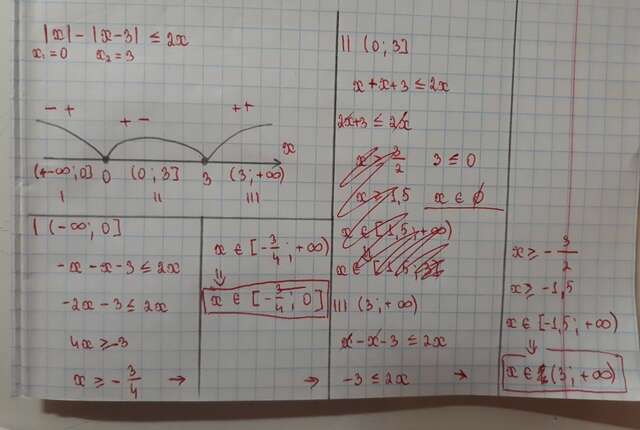 |x| - |x-3| ≤ 2x
x₁=0 x₂=3
- + + - + +
x
(-∞;0] 0 (0;3] 3 (3;+∞)
I II III
I (-∞;0]
-x-x-3 ≤ 2x
-2x-3 ≤ 2x
4x ≥ -3
x ≥ -3/4 →
x ∈ [-3/4; +∞)
⇓
x ∈ [-3/4; 0]
→
II (0;3]
x+x+3 ≤ 2x
2x+3 ≤ 2x
x ≥ 3/2 3 ≤ 0
x ≥ 1,5 x ∈ ∅
x ∈ [1,5; +∞)
⇓
x ∈ [1,5; 3]
III (3;+∞)
x-x-3 ≤ 2x
-3 ≤ 2x →
x ≥ -3/2
x ≥ -1,5
x ∈ [-1,5; +∞)
↓
x ∈ (3; +∞)